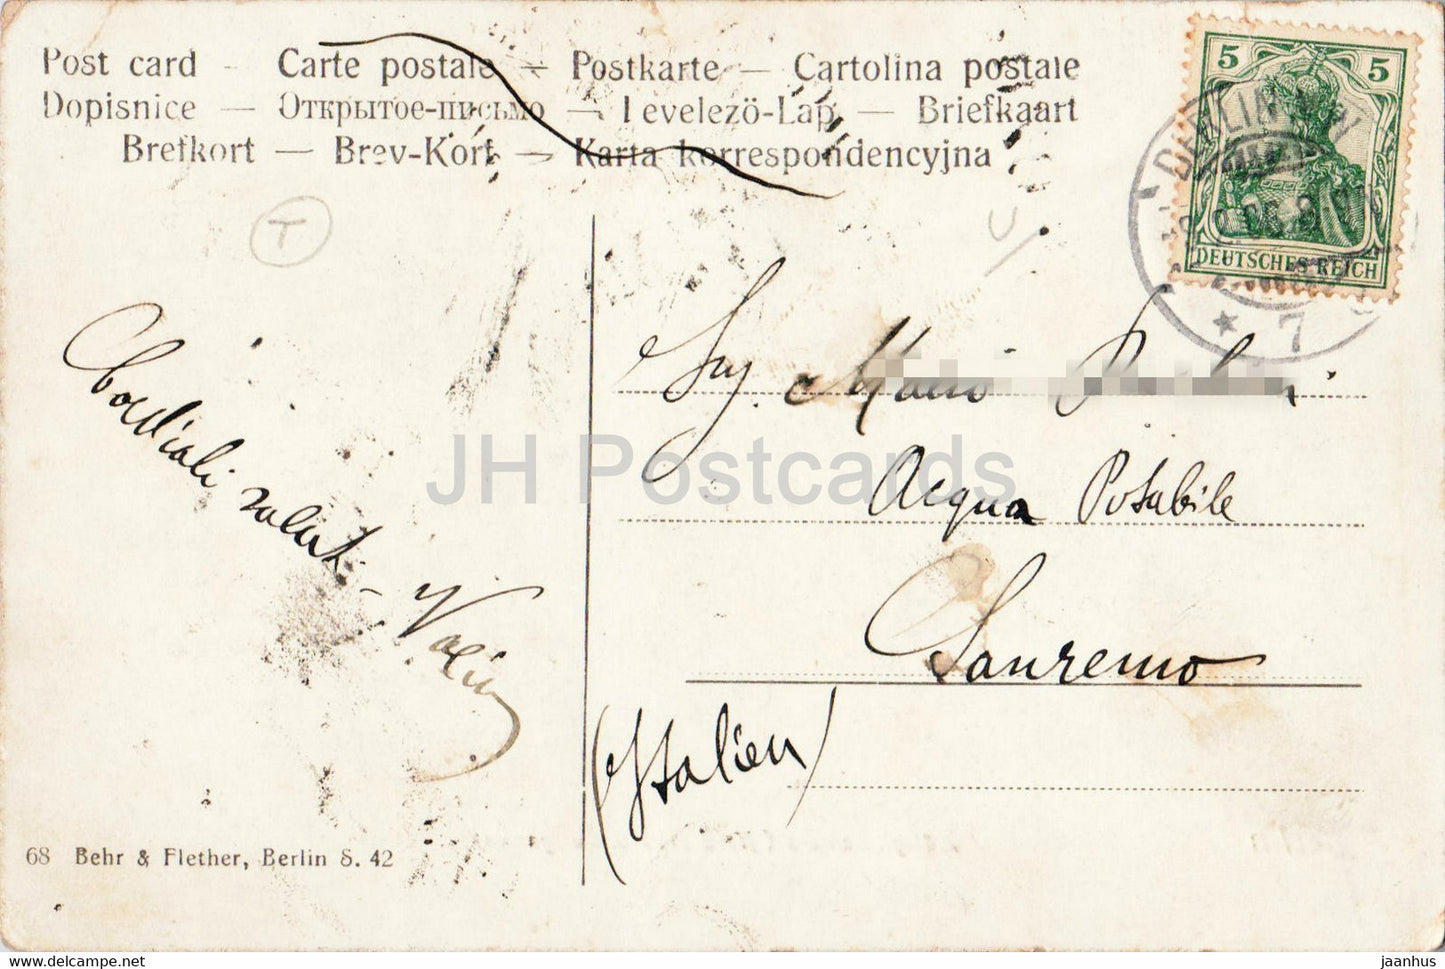 Post card - Carte postale — Postkarte — Cartolina postale
Dopisnice — Открытое-письмо — Levelezö-Lap — Briefkaart
Brefkort — Brev-Kort — Karta korrespondencyjna
5 5
BERLIN N.W.
DEUTSCHES REICH
* 7
T
Sig. Mario
Acqua Potabile
Sanremo
(Italien)
Cordiali saluti -
JH Postcards
68 Behr & Flether, Berlin S. 42
jaanhus